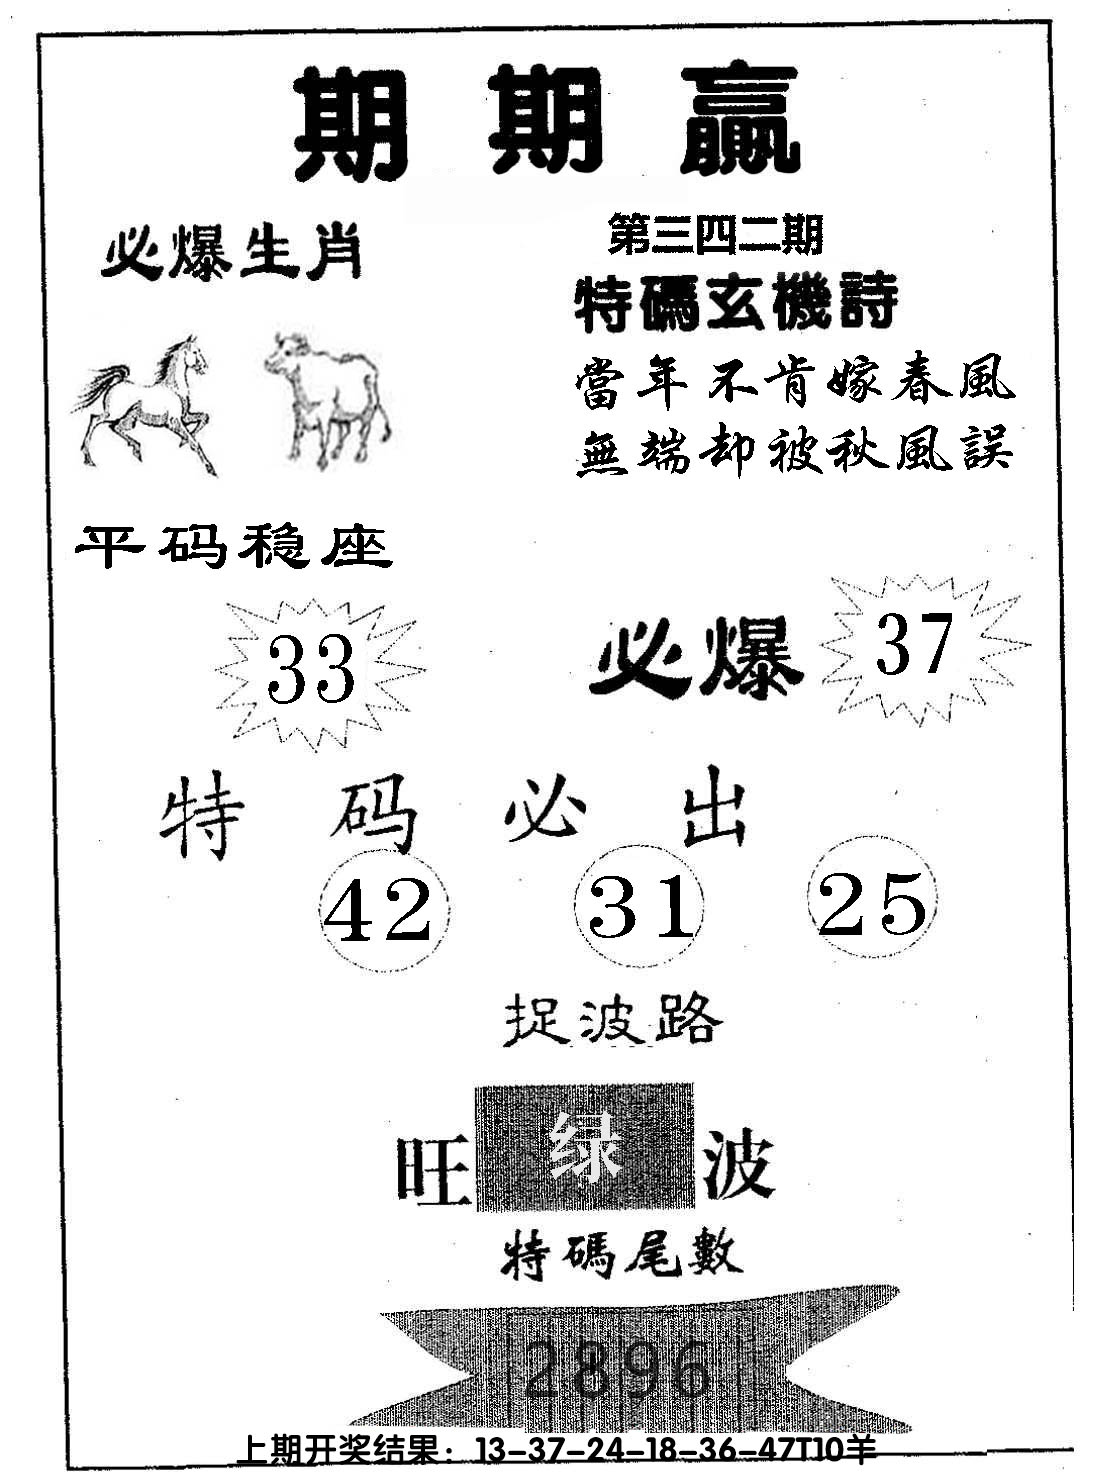 期期贏
必爆生肖
第三四二期
特碼玄機詩
當年不肯嫁春風
無端却被秋風誤
平码稳座
33
必爆 37
特码必出
42 31 25
捉波路
旺绿波
特碼尾數
2896
上期开奖结果：13-37-24-18-36-47T10羊